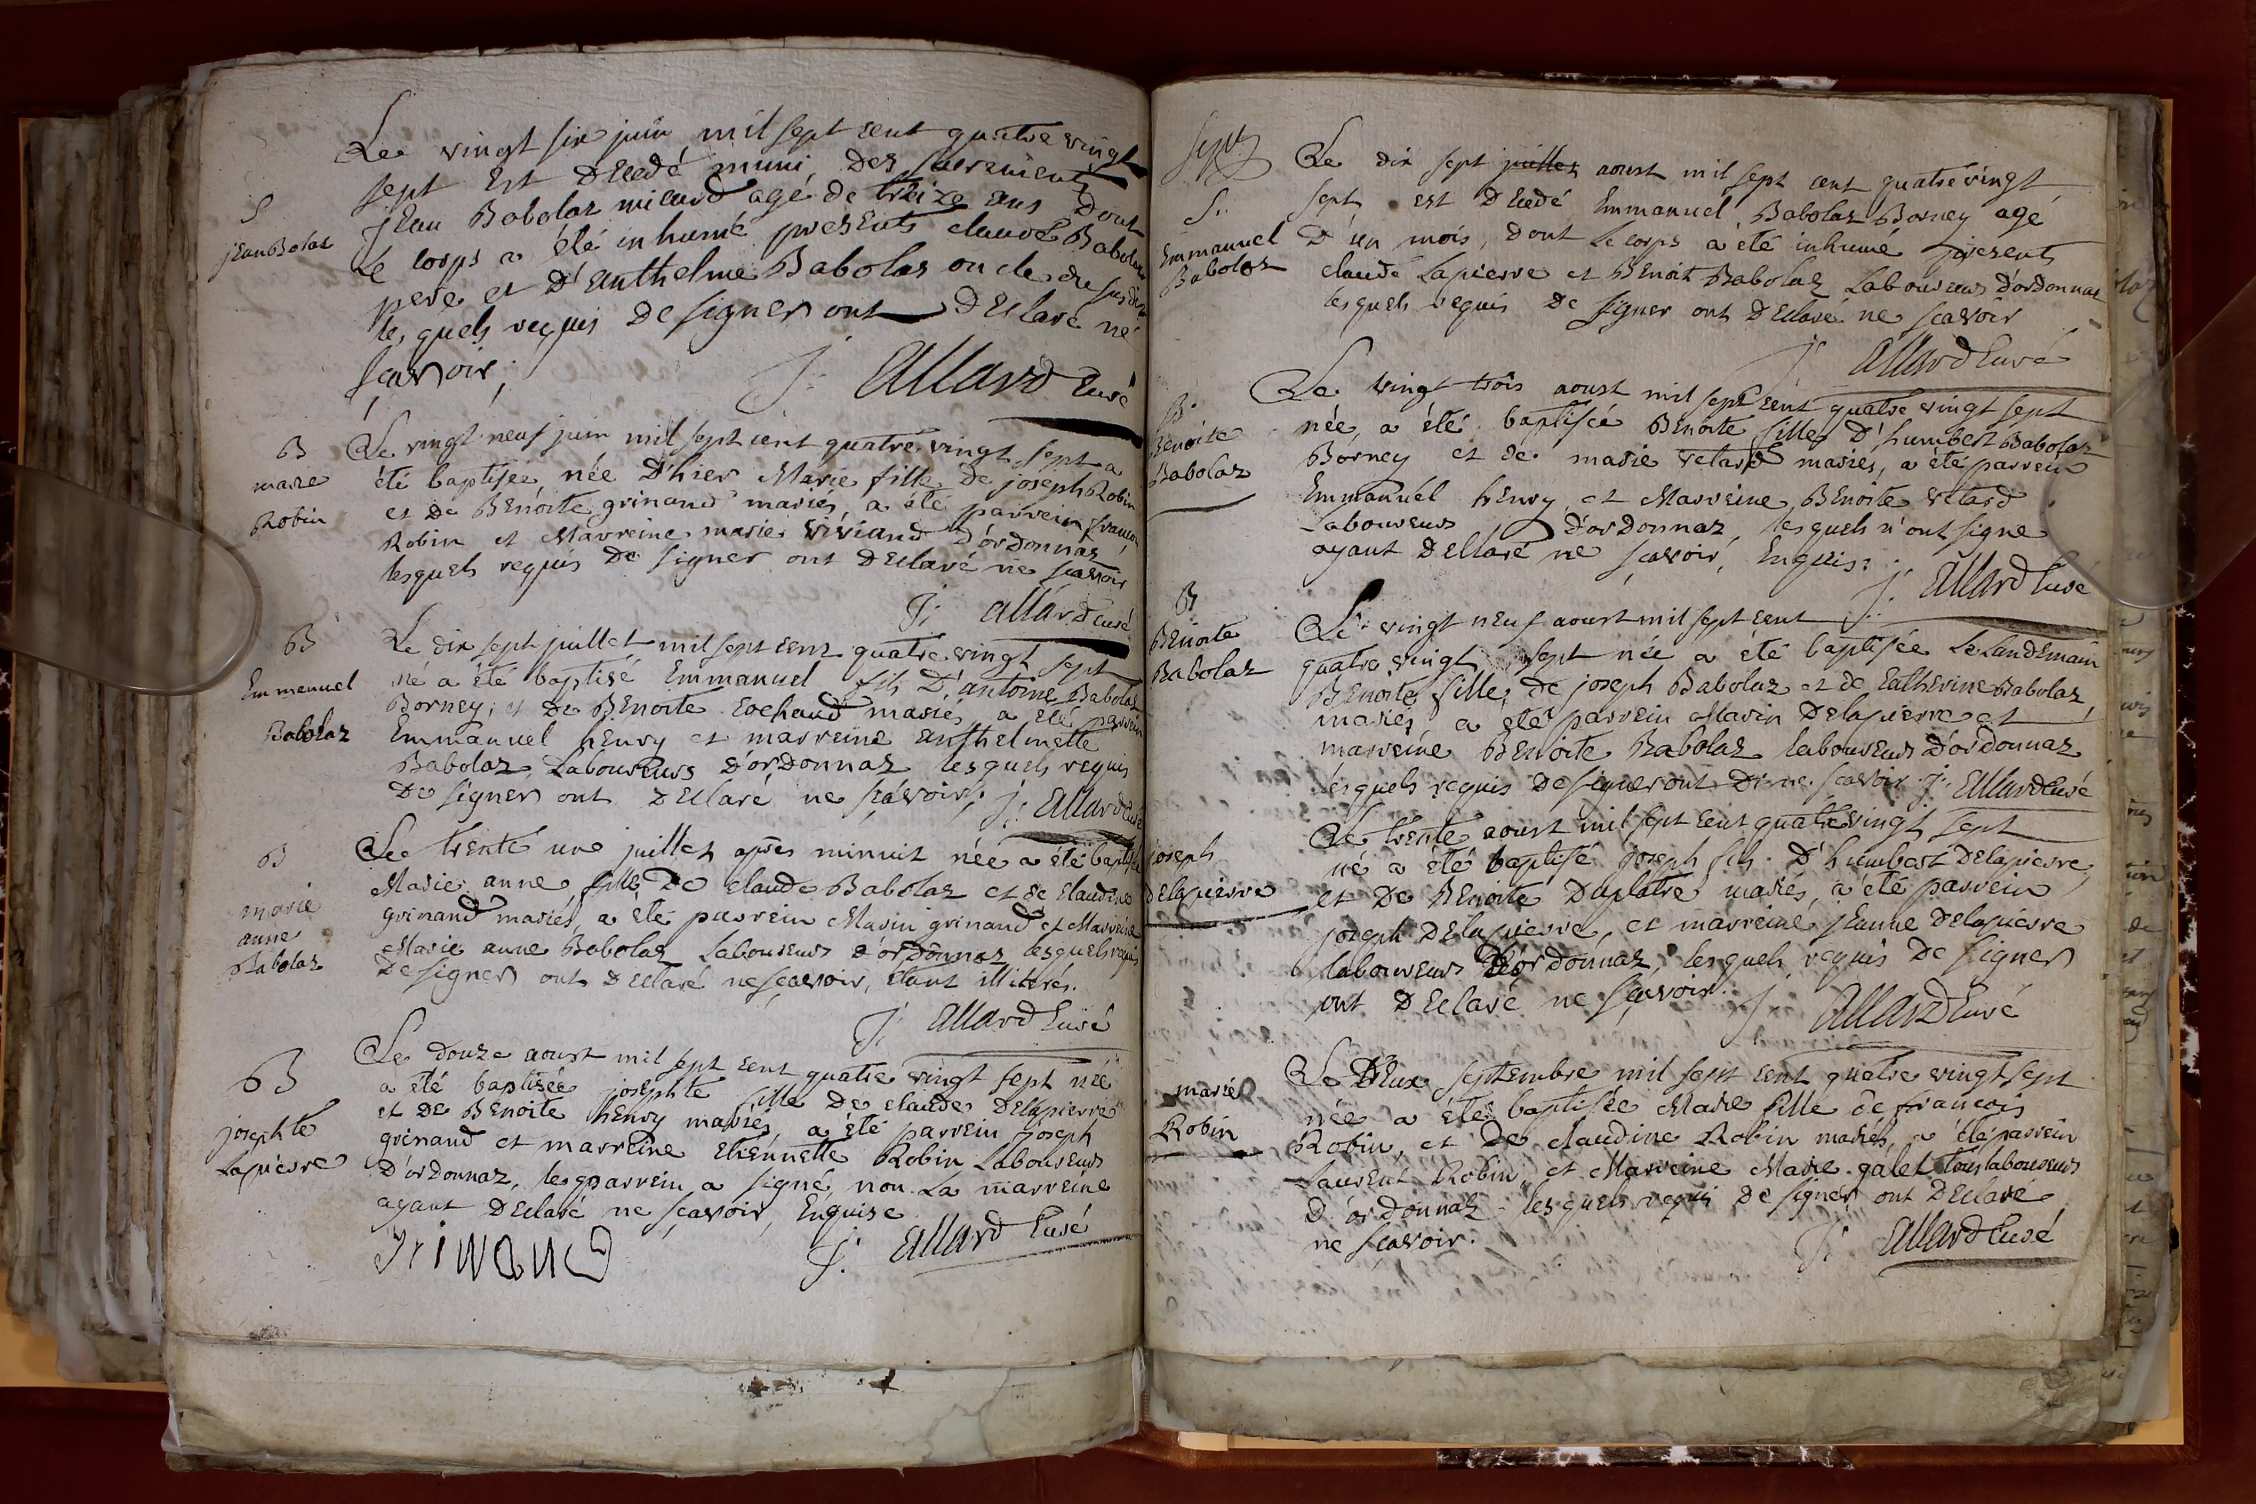 S
jean Bolaz
Le vingt six juin mil sept cent quatre vingt
sept est decedé muni des sacrements
jean Babolaz micard agé de treize ans dont
le corps a été inhumé presents claude Babolaz
pere et d'anthelme Babolaz oncle du
lesquels requis de signer ont declaré ne
scavoir,
j: allard curé
B
marie
Robin
Le vingt neuf juin mil sept cent quatre vingt sept a
été baptisée née d'hier Marie fille de joseph Robin
et de Benoite grinand mariés, a été parrein francois
Robin et Marreine marie viviand d'ordonnaz,
lesquels requis de signer ont declaré ne scavoir
j: allard curé
B
Emmanuel
Babolaz
Le dix sept juillet mil sept cent quatre vingt sept
né a été baptisé Emmanuel fils d'antoine Babolaz
Borney, et de Benoite cochaud mariés a été parrein
Emmanuel henry et marreine anthelmette
Babolaz, Laboureurs d'ordonnaz lesquels requis
de signer ont declaré ne scavoir; j: allard curé
B
marie
anne
Babolaz
Le trente un juillet après minuit née a été baptisée
Marie anne fille de claude Babolaz et de claudine
grinand mariés, a été parrein Marin grinand et Marreine
Marie anne Babolaz Laboureurs d'ordonnaz lesquels requis
de signer ont declaré ne scavoir, étant illitérés.
j: allard curé
B
josephte
Lapierre
Le douze aoust mil sept cent quatre vingt sept née
a été baptisée josephte fille de claude Delapierre
et de Benoite henry mariés a été parrein joseph
grinand et marreine etiennette Robin Laboureurs
d'ordonnaz, les parrein a signé non La marreine
ayant declaré ne scavoir, Enquise
grinand
j: allard curé
sept
S.
Emmanuel
Babolaz
Le dix sept juillet aoust mil sept cent quatre vingt
sept est decedé Emmanuel Babolaz Borney agé
d'un mois, dont le corps a été inhumé presents
claude Lapierre et Benoit Babolaz Laboureurs d'ordonnaz
lesquels requis de signer ont declaré ne scavoir
j: allard curé
B
Benoite
Babolaz
Le vingt trois aoust mil sept cent quatre vingt sept
née, a été baptisée Benoite fille d'humbert Babolaz
Borney et de marie vetard mariés, a été parrein
Emmanuel henry et Marreine Benoite vetard
Laboureurs d'ordonnaz, lesquels n'ont signe
ayant declaré ne scavoir, Enquis:
j: allard curé
B
Benoite
Babolaz
Le vingt neuf aoust mil sept cent
quatre vingt sept née a été baptisée Le landemain
Benoite fille de joseph Babolaz et de catherine Babolaz
mariés a été parrein Marin Delapierre et
marreine Benoite Babolaz laboureurs d'ordonnaz
lesquels requis de signer ont d: ne scavoir. j: allard curé
joseph
delapierre
Le trente aoust mil sept cent quatre vingt sept
né a été baptisé joseph fils d'humbert Delapierre,
et de Benoite Duplatre mariés, a été parrein
joseph Delapierre, et marreine jeanne Delapierre
laboureurs d'ordonnaz, lesquels requis de signer
ont declaré ne scavoir.
j: allard curé
marie
Robin
Le Deux septembre mil sept cent quatre vingt sept
née a été baptisée Marie fille de francois
Robin, et de claudine Robin mariés, a été parrein
Laurent Robin, et Marreine Marie galet tous laboureurs
d'ordonnaz lesquels requis de signer ont declaré
ne scavoir.
j: allard curé